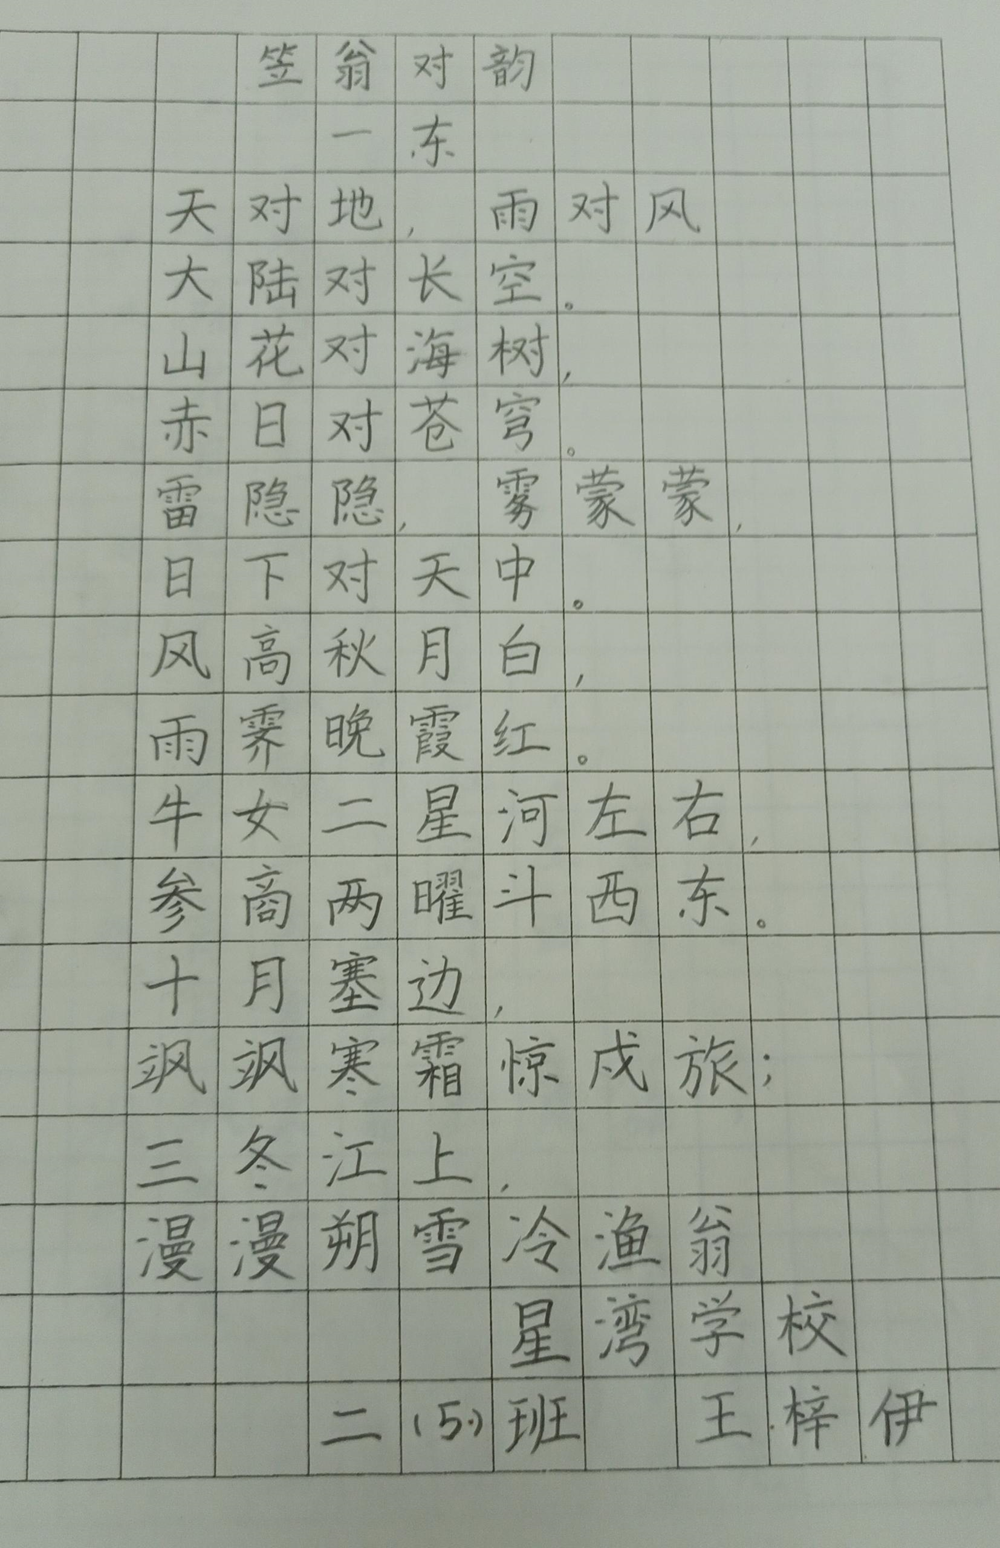 笠翁对韵
一东
天对地,雨对风
大陆对长空。
山花对海树,
赤日对苍穹。
雷隐隐,雾蒙蒙,
日下对天中。
风高秋月白,
雨霁晚霞红。
牛女二星河左右,
参商两曜斗西东。
十月塞边,
飒飒寒霜惊戍旅;
三冬江上,
漫漫朔雪冷渔翁
星湾学校
二(5)班 王梓伊